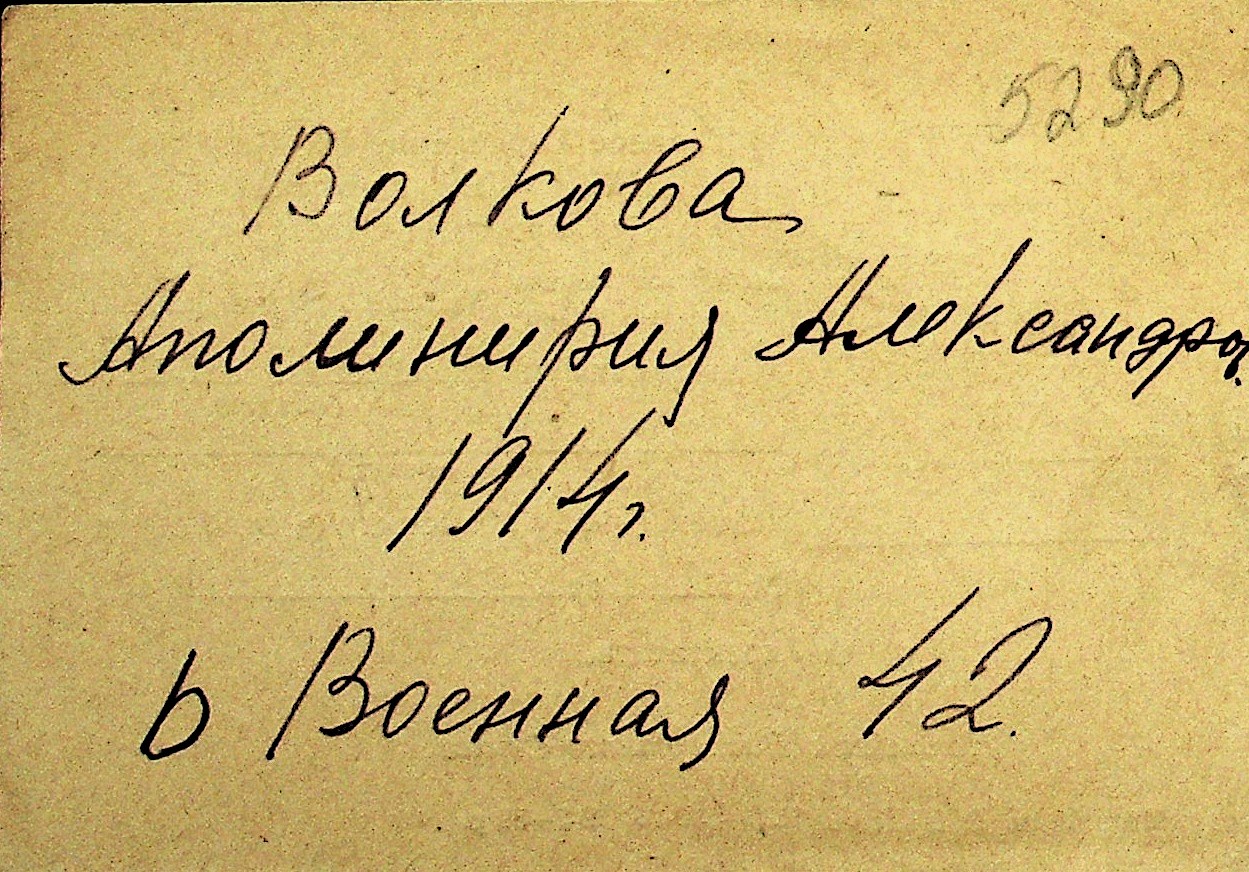 5290
Волкова
Аполинирия Александров.
1914г.
6 Военная 42.